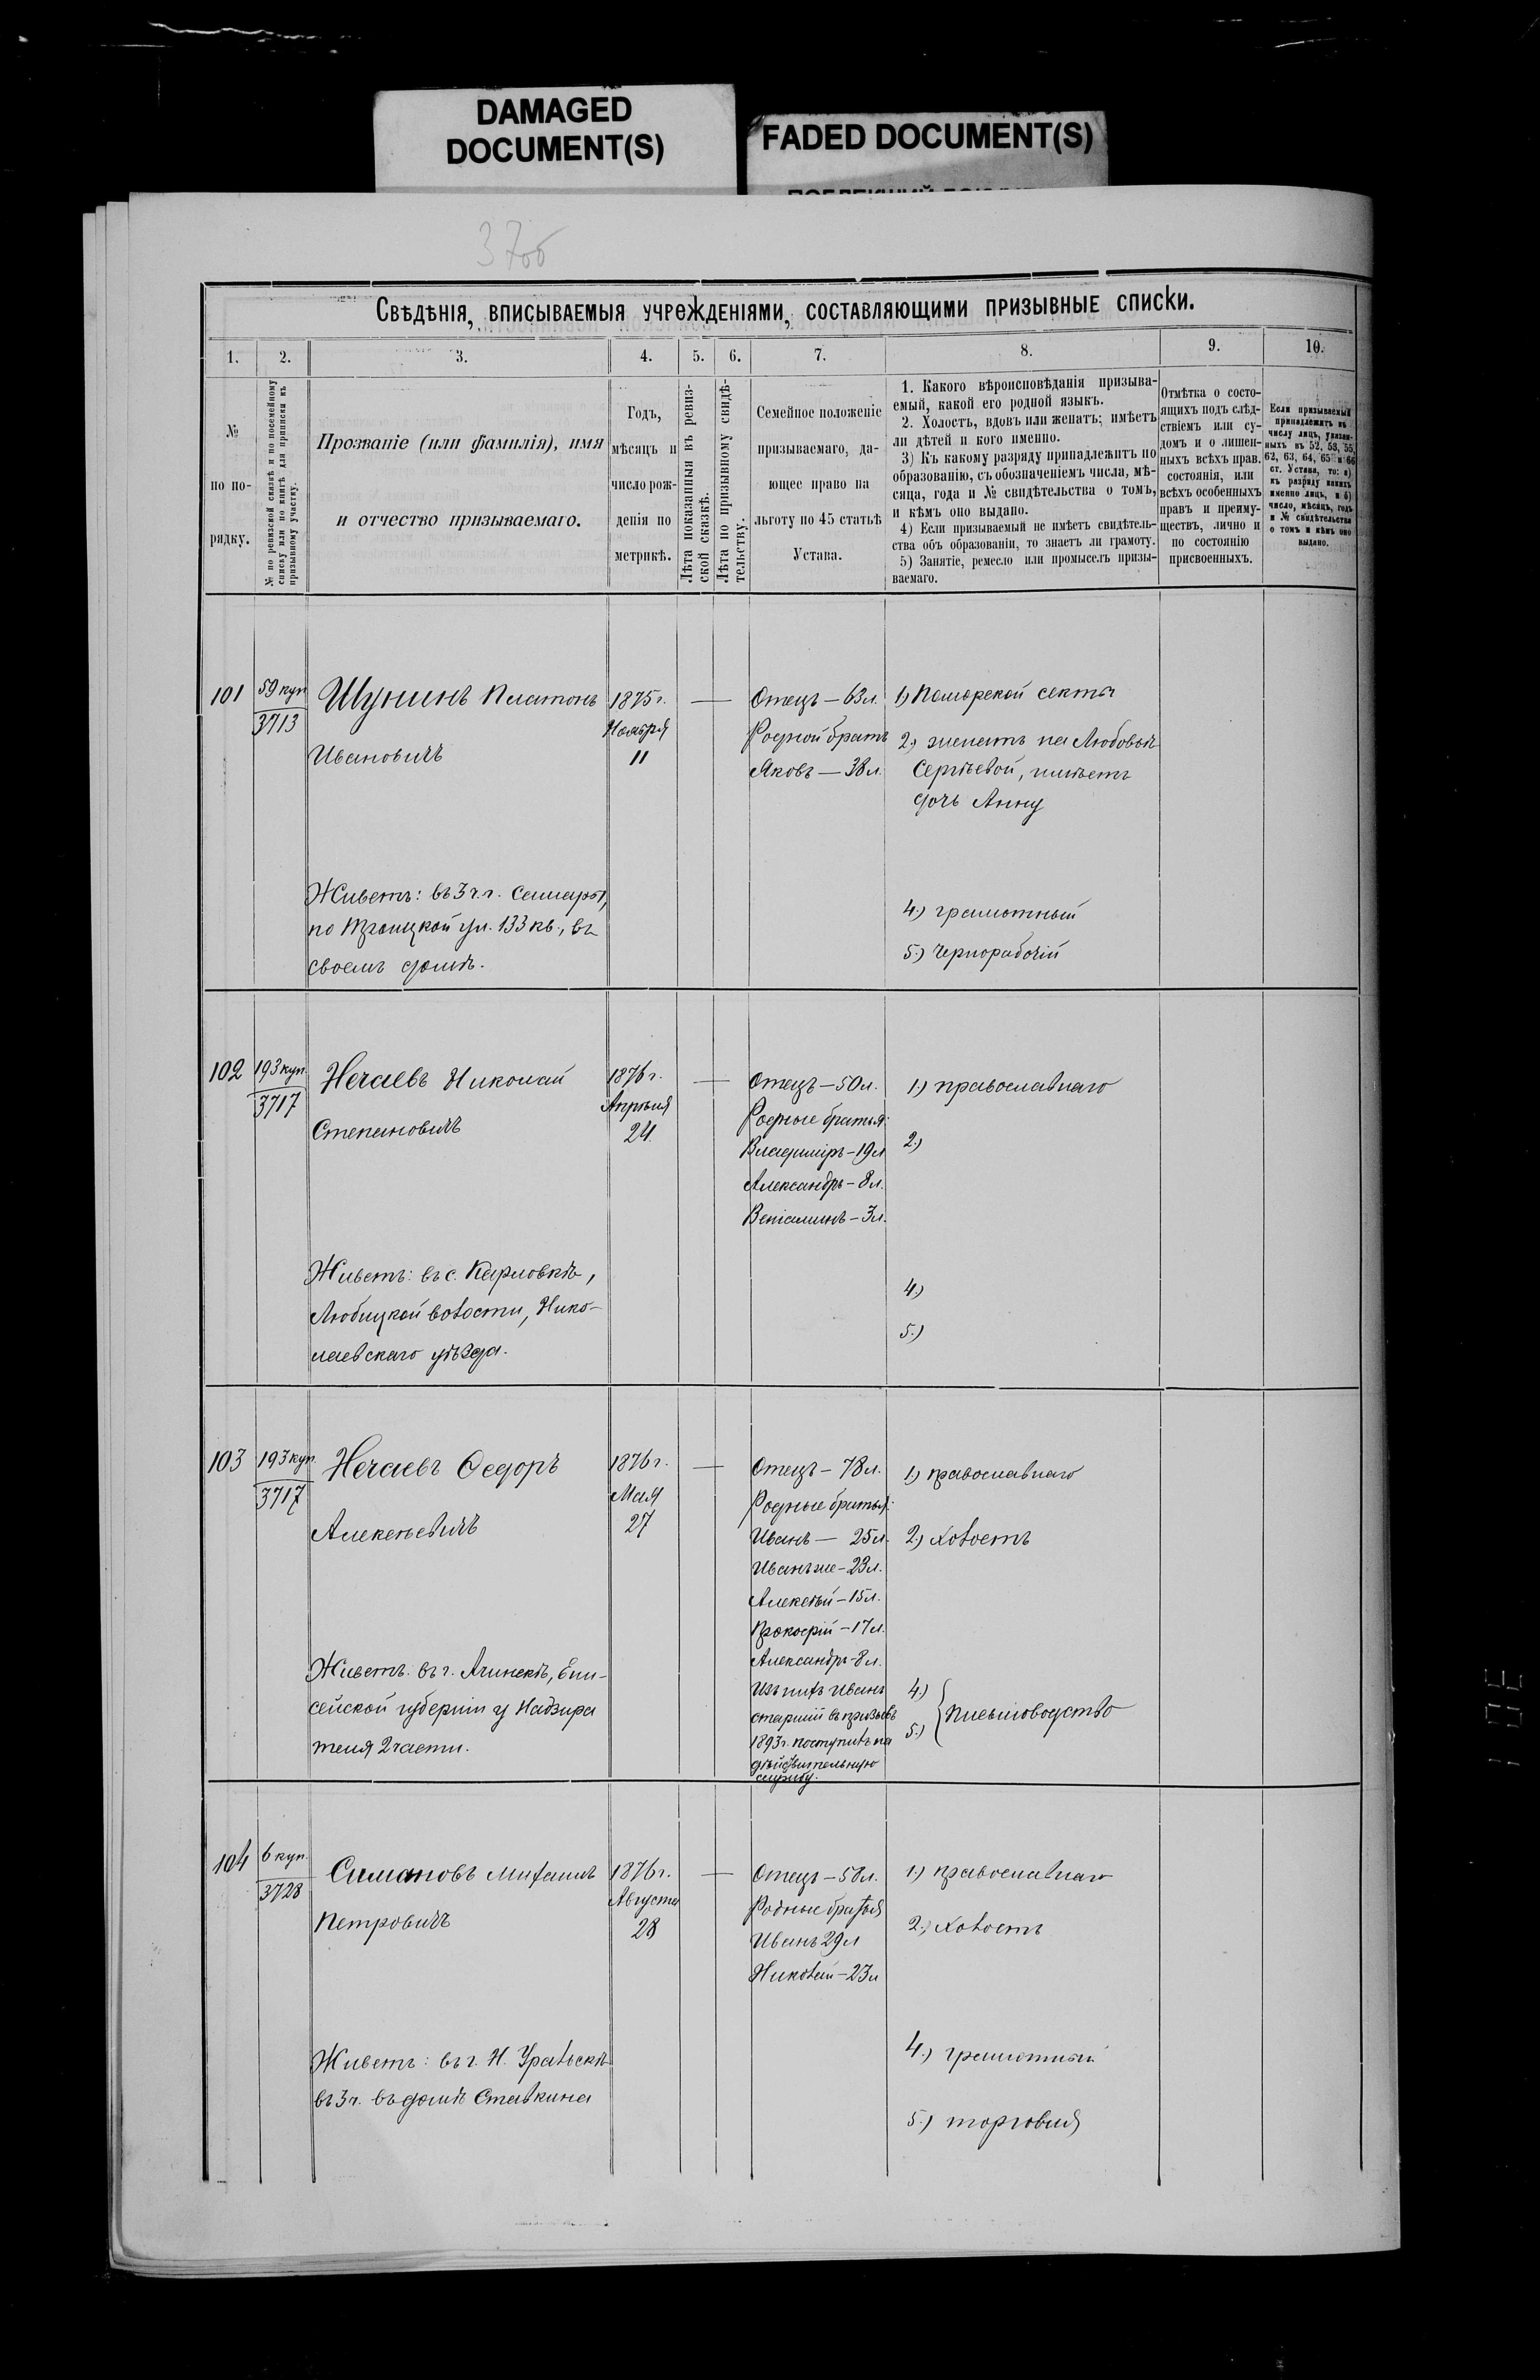 DAMAGED
DOCUMENT(S)
FADED DOCUMENT(S)
37об
Свѣдѣнія, вписываемыя учрежденіями, составляющими призывные списки.
1. 2. 3. 4. 5. 6. 7. 8. 9. 10.
№
по по-
рядку.
№ по ревизской сказкѣ и по посемейному
списку или по книгѣ для приписки къ
призывному участку.
Прозваніе (или фамилія), имя
и отчество призываемаго.
Годъ,
мѣсяцъ и
число рож-
денія по
метрикѣ.
Лѣта показанныя въ ревиз-
ской сказкѣ.
Лѣта по призывному свидѣ-
тельству.
Семейное положеніе
призываемаго, да-
ющее право на
льготу по 45 статьѣ
Устава.
1. Какого вѣроисповѣданія призыва-
емый, какой его родной языкъ.
2. Холостъ, вдовъ или женатъ; имѣетъ
ли дѣтей и кого именно.
3) Къ какому разряду принадлежитъ по
образованію, съ обозначеніемъ числа, мѣ-
сяца, года и № свидѣтельства о томъ,
и кѣмъ оно выдано.
4) Если призываемый не имѣетъ свидѣтель-
ства объ образованіи, то знаетъ ли грамоту.
5) Занятіе, ремесло или промыселъ призы-
ваемаго.
Отмѣтка о состо-
ящихъ подъ слѣд-
ствіемъ или су-
домъ и о лишен-
ныхъ всѣхъ прав.
состоянія, или
всѣхъ особенныхъ
правъ и преиму-
ществъ, лично и
по состоянію
присвоенныхъ.
Если призываемый
принадлежитъ къ
числу лицъ, указан-
ныхъ въ 52, 53, 55,
62, 63, 64, 65 и 66
ст. Устава, то: а)
къ разряду какихъ
именно лицъ, и б)
число, мѣсяцъ, годъ
и № свидѣтельства
о томъ и кѣмъ оно
выдано.
101
59 куп
3713
Шунинъ Платонъ
Ивановичъ
Живетъ: въ 3 ч. г. Самары,
по Троицкой ул. 133 кв., въ
своемъ домѣ.
1875 г.
Ноября
11
—
Отецъ — 63 л.
Родной братъ
Яковъ — 38 л.
1) Поморской секты
2) женатъ на Любовѣ
Сергѣевой, имѣетъ
дочь Анну
4.) грамотный
5.) Чернорабочій
102
193 куп.
3717
Нечаевъ Николай
Степановичъ
Живетъ: въ с. Карловкѣ,
Любицкой волости, Нико-
лаевскаго уѣзда.
1876 г.
Апрѣля
24
—
Отецъ — 50 л.
Родные братья:
Владиміръ — 19 л
Александръ — 8 л.
Веніаминъ — 3 л.
1) православнаго
2.)
4.)
5.)
103
193 куп.
3717
Нечаевъ Ѳедоръ
Алексѣевичъ
Живетъ: въ г. Ачинскѣ, Ени-
сейской губерніи у Надзира
теля 2 части.
1876 г.
Мая
27
—
Отецъ — 78 л.
Родные братья:
Иванъ — 25 л.
Иванъ же — 23 л.
Алексѣй — 15 л.
Прокофій — 17 л.
Александръ — 8 л.
Изъ нихъ Иванъ
старшій въ призывъ
1893 г. поступилъ на
дѣйствительную
службу.
1) православнаго
2) холостъ
4.)
5.)
письмоводство
104
6 куп.
3728
Симановъ Михаилъ
Петровичъ
Живетъ: въ г. Н. Уральскѣ
въ 3 ч. въ домѣ Ставкина
1876 г.
Августа
28
—
Отецъ — 58 л.
Родные братья
Иванъ 29 л
Николай — 23 л
1.) православнаго
2.) холостъ
4.) грамотный
5.) торговля